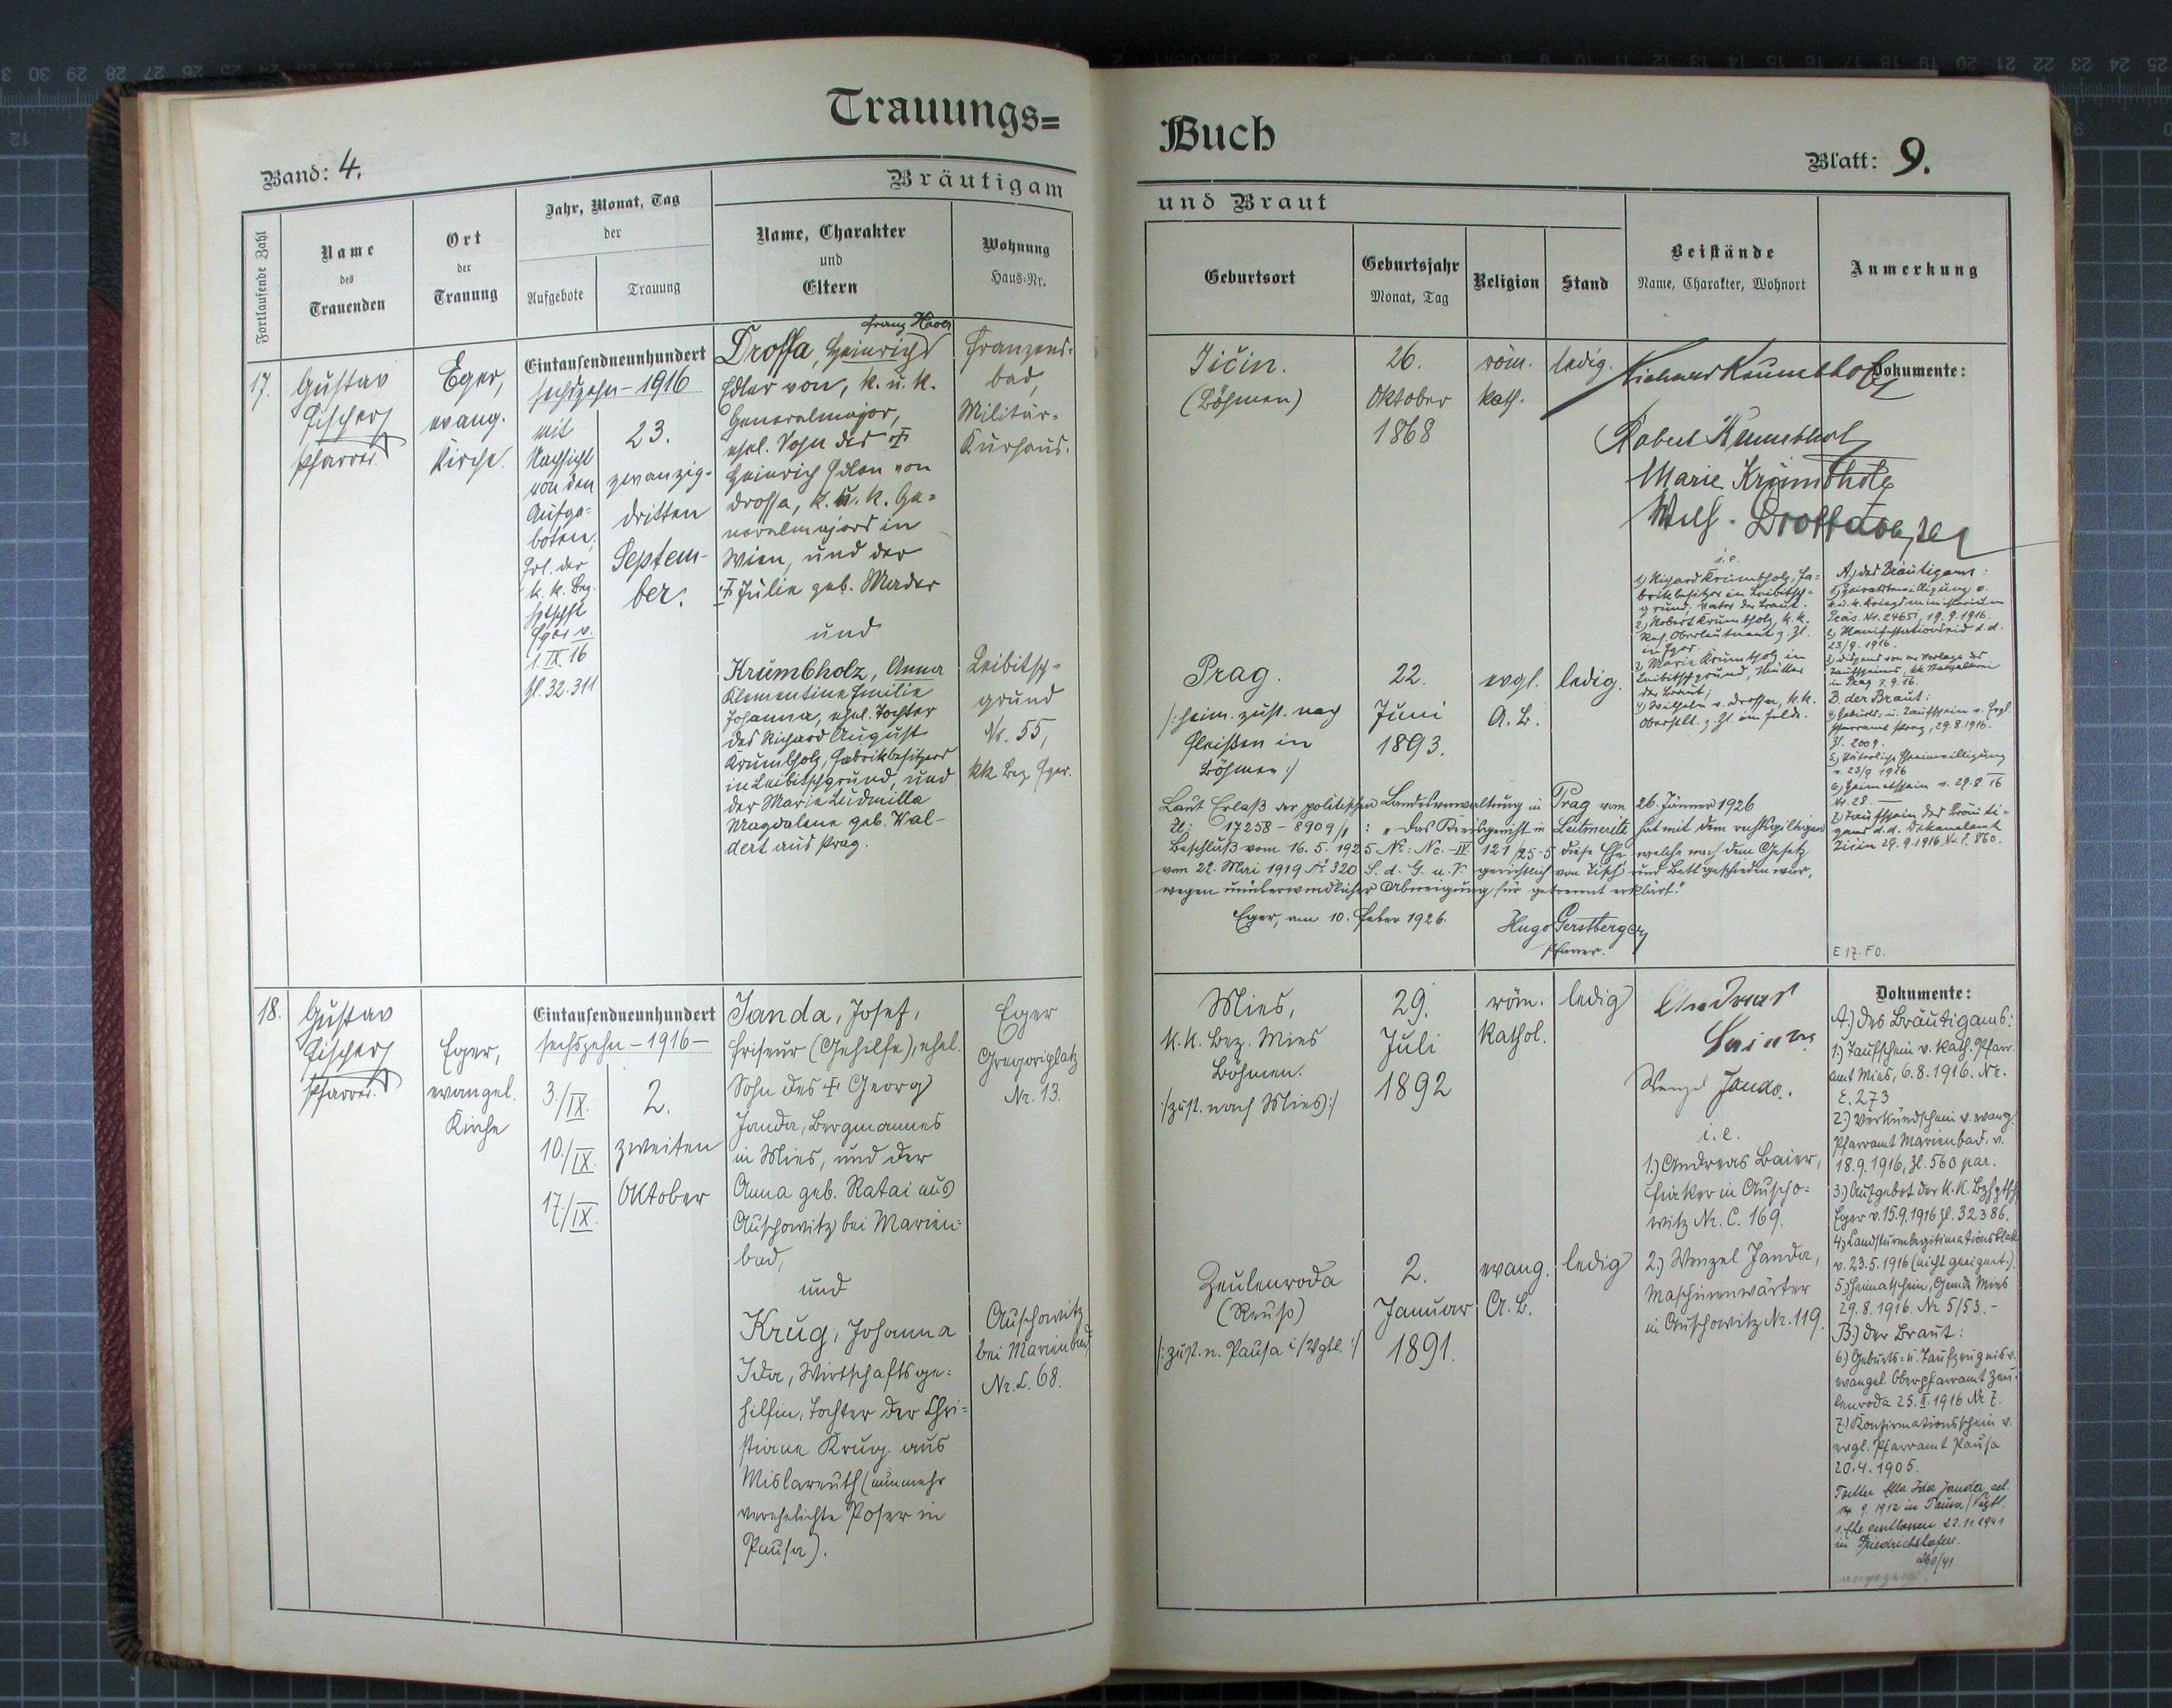 Trauungs=
Buch
Band: 4.
Blatt: 9.
Bräutigam
und Braut
Fortlaufende Zahl
Name
des
Trauenden
Ort
der
Trauung
Jahr, Monat, Tag
der
Aufgebote
Trauung
Name, Charakter
und
Eltern
Wohnung
Haus=Nr.
Geburtsort
Geburtsjahr
Monat, Tag
Religion
Stand
Beistände
Name, Charakter, Wohnort
Anmerkung
17.
Gustav
Fischer
Pfarrer.
Eger,
evang.
Kirche.
Eintausendneunhundert
sechszehn – 1916
mit
Nachsicht
von den
Aufge=
boten,
Erl. der
k. k. Bez.
Hptschft
Eger v.
1. IX. 16
Zl. 32.311
23.
zwanzig-
dritten
Septem-
ber.
Franz Xaver
Drossa, Heinrich
Edler von, k. u. k.
Generalmajor,
ehel. Sohn des †
Heinrich Edlen von
Drossa, k. u. k. Ge=
neralmajors in
Wien, und der
† Julie geb. Mader
und
Krumbholz, Anna
Klementine Emilie
Johanna, ehel. Tochter
des Richard August
Krumbholz, Fabriksbesitzers
in Leibitschgrund, und
der Marie Ludmilla
Magdalene geb. Wal-
dert aus Prag.
Franzens-
bad,
Militär-
Kurhaus.
Leibitsch-
grund
Nr. 55,
kk Bez. Eger.
Jičin.
(Böhmen)
26.
Oktober
1868
röm.
kath.
ledig.
Prag.
/: heim. zust. nach
Fleißen in
Böhmen :/
22.
Juni
1893.
evgl.
A. B.
ledig.
Richard Krumbholz
Robert Krumbholz
Marie Krumbholz
Wilh. Drossa
i.e.
1.) Richard Krumbholz, Fa=
briksbesitzer in Leibitsch=
grund, Vater der Braut.
2.) Robert Krumbholz, k. k.
Oberleutnant z. Zl.
in Eger.
3.) Marie Krumbholz in
Leibitschgrund, Mutter
der Braut;
4.) Wilhelm v. Drossa, k. k.
Oberstlt. z. Zl. im Felde.
Dokumente:
A.) des Bräutigams:
1.) Heiratsbewilligung v.
k. u. k. Kriegsministerium
Präs. Nr. 24651, 19.9.1916.
2.) Manifestationseid d.d.
23/9. 1916.
3.) Dispens von der Vorlage des
Taufscheines, kk Statthalterei
in Prag 7.9.16.
B. der Braut:
4.) Geburts- u. Taufschein v. evgl.
Pfarramt Prag, 29.8.1916.
Zl. 2009.
5.) Väterliche Eheeinwilligung
v. 23/9 1916
6.) Heimatschein v. 29.8.16
Nr. 28. —
7.) Taufschein des Bräuti=
gams d.d. Dekanalamt
Jičin 29.9.1916 Nr. 860.
Laut Erlaß der politischen Landesverwaltung in Prag vom 26. Jänner 1926
Zl: 17258 – 8909/1 : „Das Kreisgericht in Leitmeritz hat mit dem rechtsgiltigen
Beschluß vom 16. 5. 1925 Nr: Nc.–IV 121/25-5 diese Ehe, welche nach dem Gesetz
vom 22. Mai 1919 № 320 S. d. G. u. V. gerichtlich von Tisch und Bett geschieden war,
wegen unüberwindlicher Abneigung für getrennt erklärt."
Eger, am 10. Feber 1926.
Hugo Gerstberger
Pfarrer.
E 17. F0.
18.
Gustav
Fischer
Pfarrer.
Eger,
evangel.
Kirche
Eintausendneunhundert
sechszehn – 1916 –
3./IX.
10./IX.
17./IX.
2.
zweiten
Oktober
Janda, Josef,
Friseur (Gehilfe), ehel.
Sohn des † Georg
Janda, Bergmannes
in Mies, und der
Anna geb. Ratai aus
Auschowitz bei Marien=
bad,
und
Krug, Johanna
Ida, Wirtschaftsge=
hilfin, Tochter der Chri=
stiane Krug aus
Mislareuth (nunmehr
verehelichte Poser in
Pausa).
Eger
Gregoriplatz
Nr. 13.
Auschowitz
bei Marienbad
Nr. C. 68.
Mies,
k. k. Bez. Mies
Böhmen.
/: zust. nach Mies :/
29.
Juli
1892
röm.
kathol.
ledig
Zeulenroda
(Reuß)
/: zust. n. Pausa i/Vgtl. :/
2.
Januar
1891.
evang.
A. B.
ledig
Andreas
Baier
Wenzel Janda.
i. e.
1.) Andreas Baier,
Fiaker in Auscho=
witz Nr. C. 169.
2.) Wenzel Janda,
Maschinenwärter
in Auschowitz Nr. 119.
Dokumente:
A.) des Bräutigams:
1.) Taufschein v. kath. Pfarr=
amt Mies, 6.8.1916. Nr.
E. 273
2.) Verkündschein v. evang.
Pfarramt Marienbad. v.
18.9.1916, Zl. 560 par.
3.) Aufgebot der k. k. Bzhptsch
Eger v. 15.9.1916 Zl. 32386.
4.) Landsturmlegitimationsblatt
v. 23.5.1916 (nicht geeignet).
5.) Heimatschein, Gemde Mies
29.8.1916. Nr 5153. –
B.) der Braut:
6.) Geburts= u. Taufzeugnis v.
evangel. Oberpfarramt Zeu=
lenroda 25. II. 1916 Nr 7.
7.) Konfirmationsschein v.
evgl. Pfarramt Pausa
20.4.1905.
Tochter Ella Ida Janda, geb.
14. 9. 1912 in Pausa/Vogtl.
1. Ehe geschlossen 22.11.1941
in Friedrichshafen.
260/41